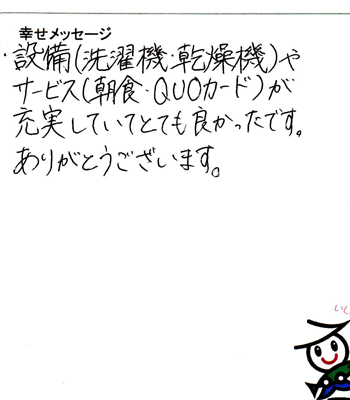 幸せメッセージ
設備(洗濯機・乾燥機)や
サービス(朝食・QUOカード)が
充実していてとても良かったです。
ありがとうございます。